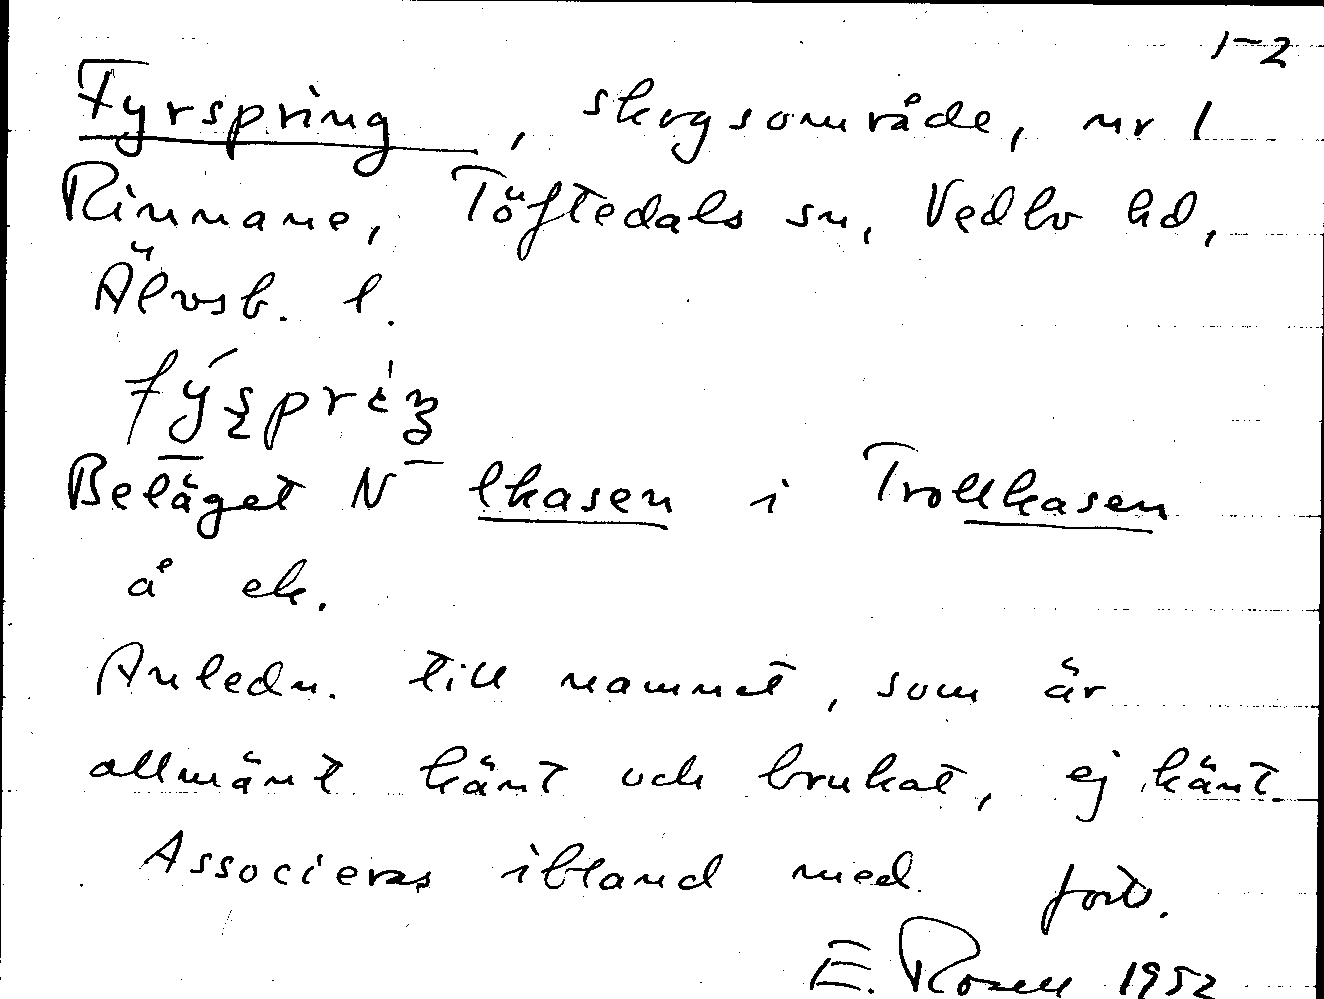 1-2
Fyrspring, skogsområde, nr 1
Rinnane, Töftedals sn, Vedbo hd,
Älvsb. l.
Beläget N lkasen i Trollkasen
å ek.
Anledn. till namnet, som är
allmänt känt och brukat, ej känt.
Associeras ibland med forts.
E. Rosell 1952